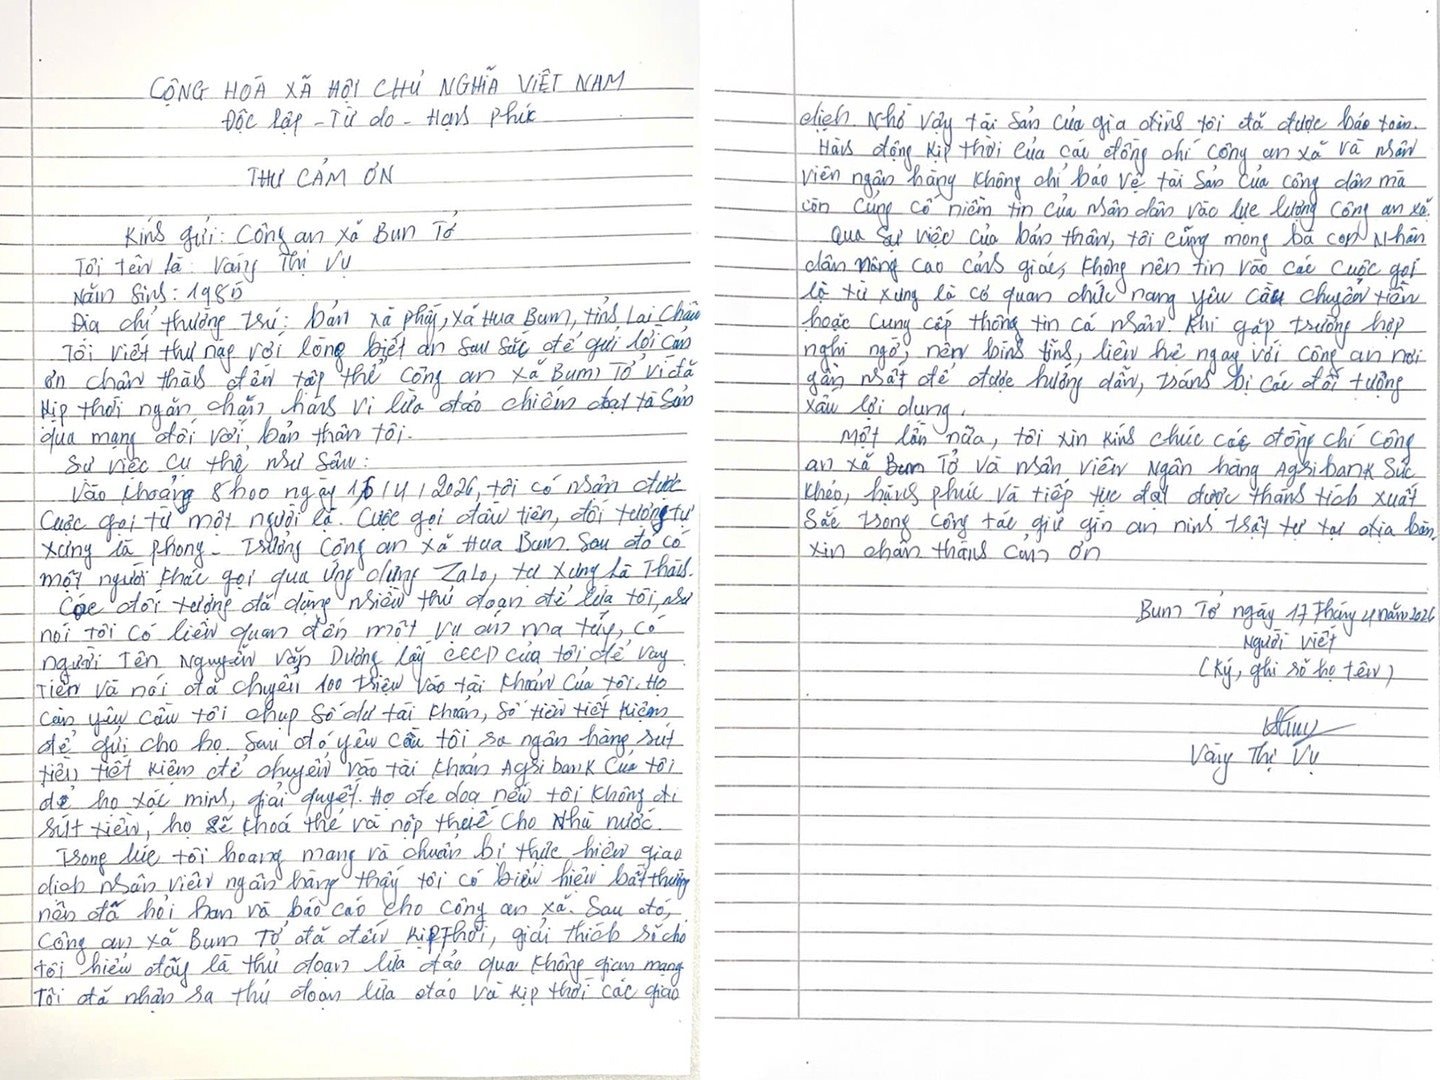 CỘNG HOÀ XÃ HỘI CHỦ NGHĨA VIỆT NAM
Độc lập - Tự do - Hạnh phúc
THƯ CẢM ƠN
Kính gửi: Công an xã Bum Tở
Tôi tên là: Vàng Thị Vụ
Năm sinh: 1985
Địa chỉ thường trú: bản xà phày, xã Hua Bum, tỉnh Lai Châu
Tôi viết thư này với lòng biết ơn sâu sắc để gửi lời cảm
ơn chân thành đến tập thể Công an xã Bum Tở vì đã
kịp thời ngăn chặn hành vi lừa đảo chiếm đoạt tà sản
qua mạng đối với bản thân tôi.
Sự việc cụ thể như sau:
Vào khoảng 8h00 ngày 16/4/2026, tôi có nhận được
cuộc gọi từ một người lạ. Cuộc gọi đầu tiên, đối tượng tự
xưng là phong - Trưởng Công an xã Hua Bum. Sau đó có
một người khác gọi qua ứng dụng Zalo, tự xưng là Thành.
Các đối tượng đã dụng nhiều thủ đoạn để lừa tôi, như
nói tôi có liên quan đến một vụ án ma túy, có
người tên Nguyễn Văn Dương lấy CCCD của tôi để vay
tiền và nói đã chuyển 100 triệu vào tài khoản của tôi. Họ
còn yêu cầu tôi chụp số dư tài khoản, số tiền tiết kiệm
để gửi cho họ. Sau đó yêu cầu tôi ra ngân hàng rút
tiền tiết kiệm để chuyển vào tài khoản Agribank của tôi
để họ xác minh, giải quyết. Họ đe dọa nếu tôi không đi
rút tiền, họ sẽ khoá thẻ và nộp thuế cho Nhà nước.
Trong lúc tôi hoang mang và chuẩn bị thực hiện giao
dịch nhân viên ngân hàng thấy tôi có biểu hiện bất thường
nên đã hỏi han và báo cáo cho công an xã. Sau đó,
Công an xã Bum Tở đã đến kịp thời, giải thích rõ cho
tôi hiểu đây là thủ đoạn lừa đảo qua không gian mạng
Tôi đã nhận ra thủ đoạn lừa đảo và kịp thời các giao
dịch. Nhờ vậy tài sản của gia đình tôi đã được bảo toàn.
Hành động kịp thời của các đồng chí công an xã và nhân
viên ngân hàng không chỉ bảo vệ tài sản của công dân mà
còn củng cố niềm tin của nhân dân vào lực lượng công an xã.
Qua sự việc của bản thân, tôi cũng mong bà con Nhân
dân nâng cao cảnh giác, không nên tin vào các cuộc gọi
lạ tự xưng là cơ quan chức năng yêu cầu chuyển tiền
hoặc cung cấp thông tin cá nhân. Khi gặp trường hợp
nghi ngờ, nên bình tĩnh, liên hệ ngay với công an nơi
gần nhất để được hướng dẫn, tránh bị các đối tượng
xấu lợi dụng.
Một lần nữa, tôi xin kính chúc các đồng chí Công
an xã Bum Tở và nhân viên Ngân hàng Agribank sức
khỏe, hạnh phúc và tiếp tục đạt được thành tích xuất
sắc trong công tác giữ gìn an ninh trật tự tại địa bàn.
xin chân thành cảm ơn
Bum Tở ngày 17 tháng 4 năm 2026
Người viết
(Ký, ghi rõ họ tên)
Vàng Thị Vụ